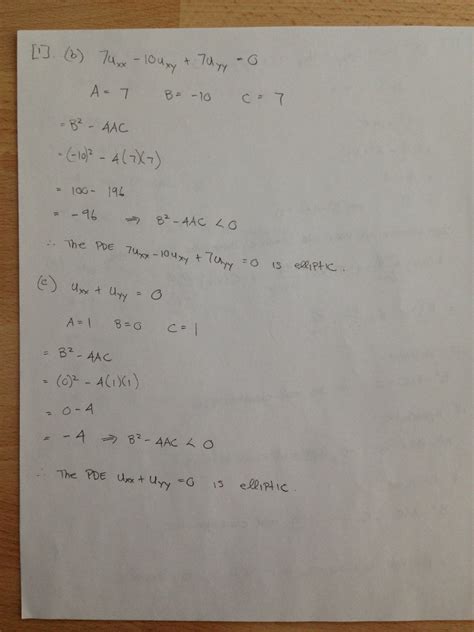 [1]. (b) 7uxx - 10uxy + 7uyy = 0
A = 7 B = -10 C = 7
= B² - 4AC
= (-10)² - 4(7)(7)
= 100 - 196
= -96 ⇒ B² - 4AC < 0
∴ The PDE 7uxx - 10uxy + 7uyy = 0 is elliptic.
(c) uxx + uyy = 0
A = 1 B = 0 C = 1
= B² - 4AC
= (0)² - 4(1)(1)
= 0 - 4
= -4 ⇒ B² - 4AC < 0
∴ The PDE uxx + uyy = 0 is elliptic.